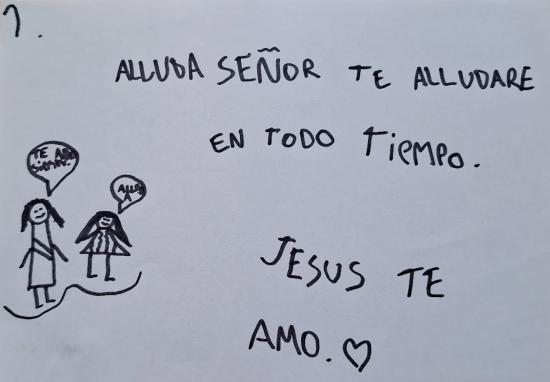 1.
ALLUDA SEÑOR TE ALLUDARE
EN TODO TIEMPO.
TE
SIEMPRE.
ALLUD
A
JESUS TE
AMO.